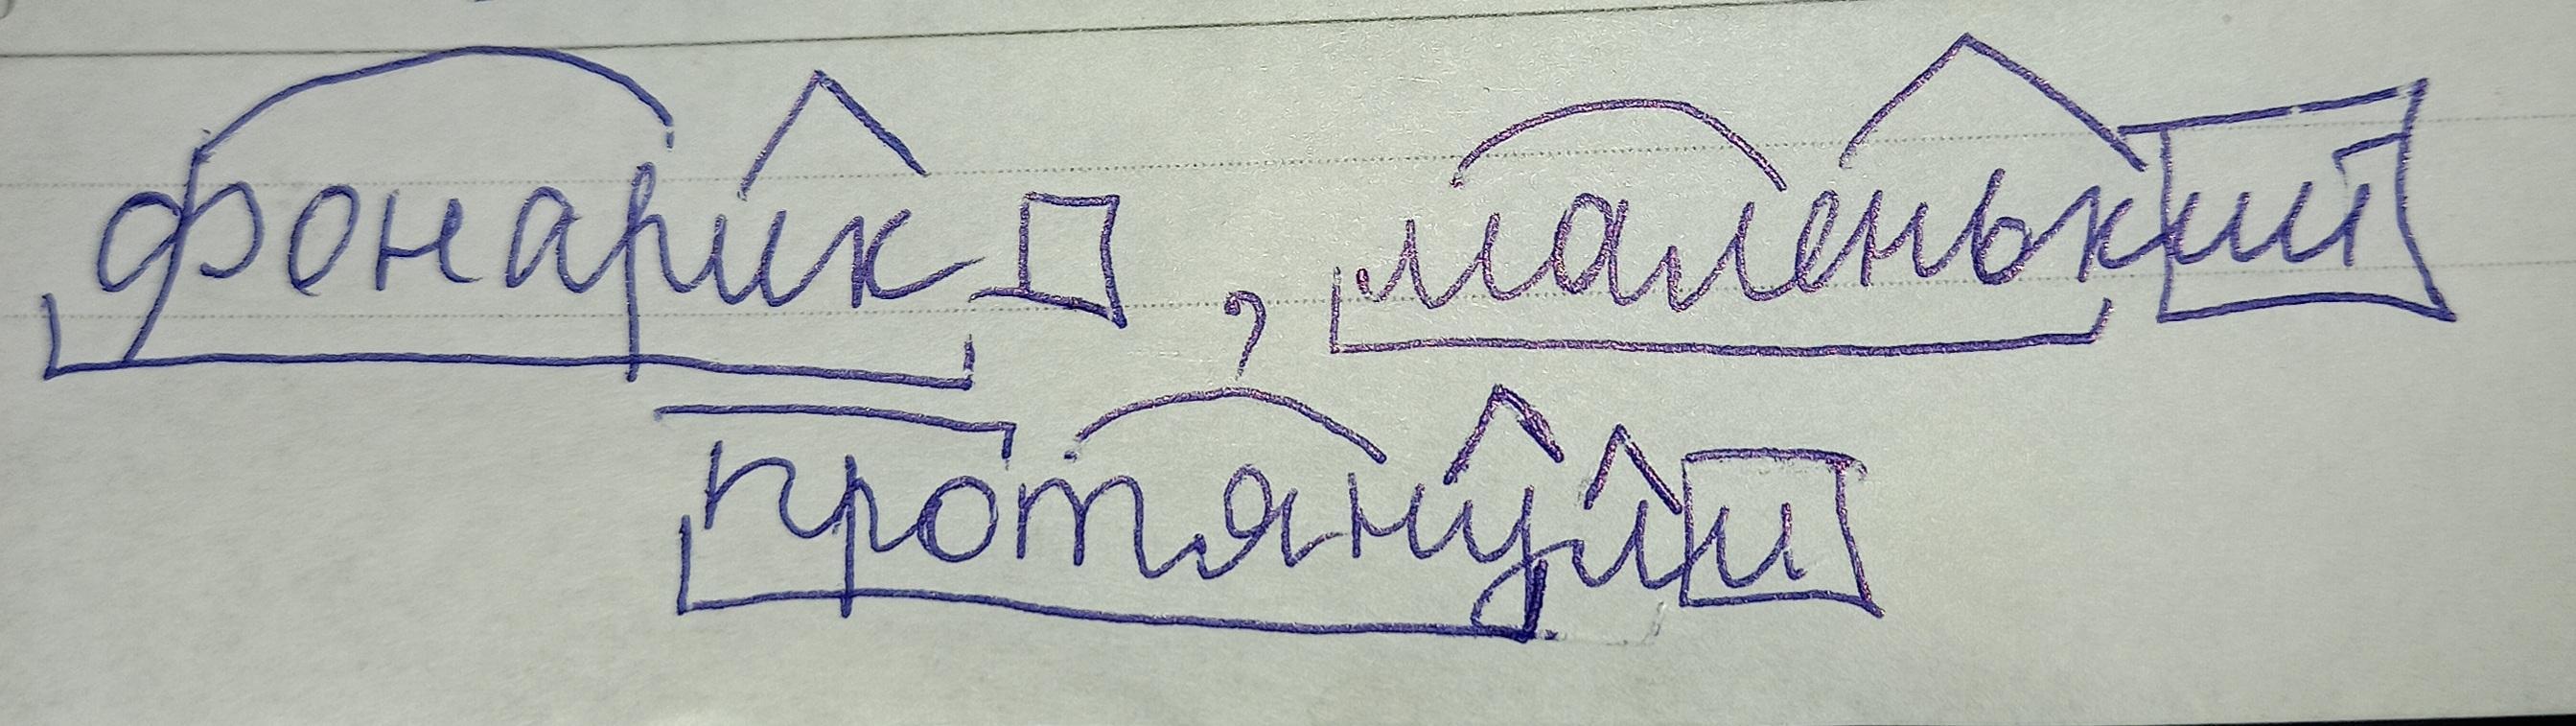 фонарик , маленький
протянули